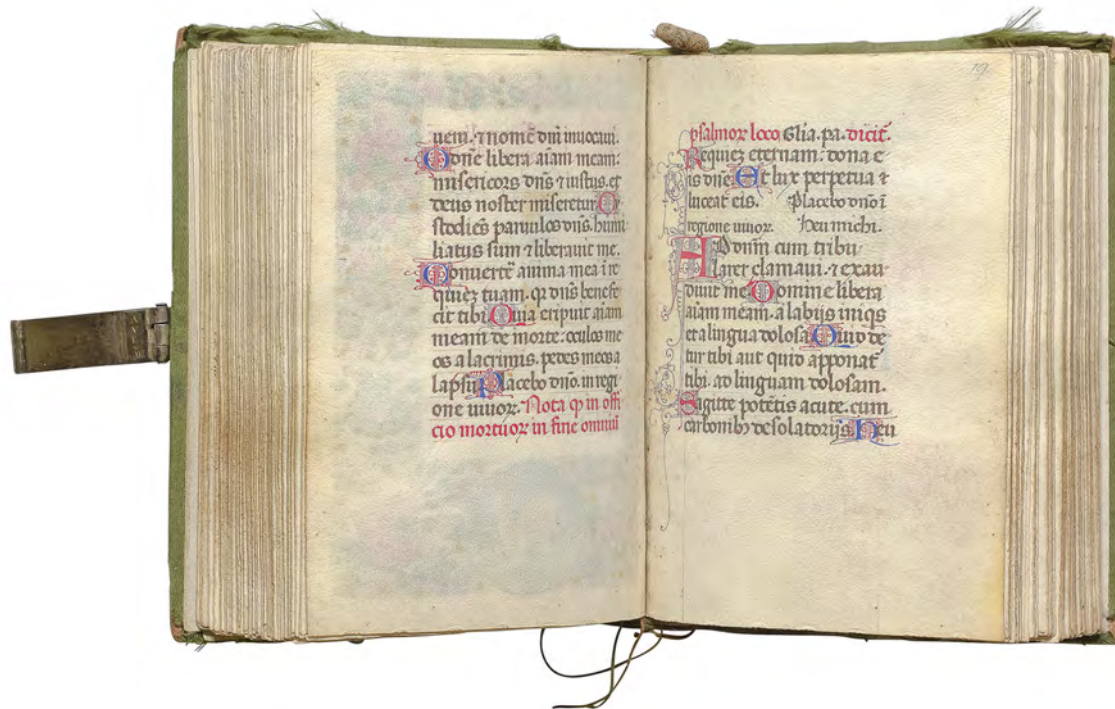 uem. ⁊ nomē dn̄i inuocaui.
O dn̄e libera aīam meam:
misericors dn̄s ⁊ iustus. et
deus noster miseretur. Cu
stodiēs paruulos dn̄s. humi
liatus sum ⁊ liberauit me.
Conuertē anima mea ī re
quiez tuam. qr dn̄s benefe
cit tibi Quia eripuit aīam
meam de morte: oculos me
os a lacrimis. pedes meos a
lapsu Placebo dn̄o. in regi
one uiuoꝝ. Nota ꝙ in offi
cio mortuoꝝ in fine omniū
19
psalmoꝝ loco Gl̄ia. pa. dicit᷑.
Requiez eternam: dona e
is dn̄e Et lux perpetua ⁊
luceat eis. Placebo dn̄o ī
regione uiuoꝝ. Heu michi.
AD dominū cum tribu
larer clamaui. ⁊ exau
diuit me Domine libera
aīam meam. a labijs iniqs
et a lingua dolosa Quid de
tur tibi aut quid apponat᷑
tibi. ad linguam dolosam.
Sagitte potētis acute. cum
carbonibꝫ desolatorijs. Heu